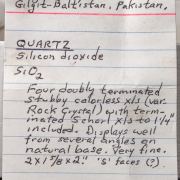 Gilgit-Baltistan, Pakistan.
QUARTZ
Silicon dioxide
SiO2
Four doubly terminated
stubby colorless xls (var.
Rock Crystal) with term-
inated Schorl xls to 1 1/4"
included. Displays well
from several angles on
natural base. Very fine.
2 x 1 7/8 x 2" "S" faces (?).